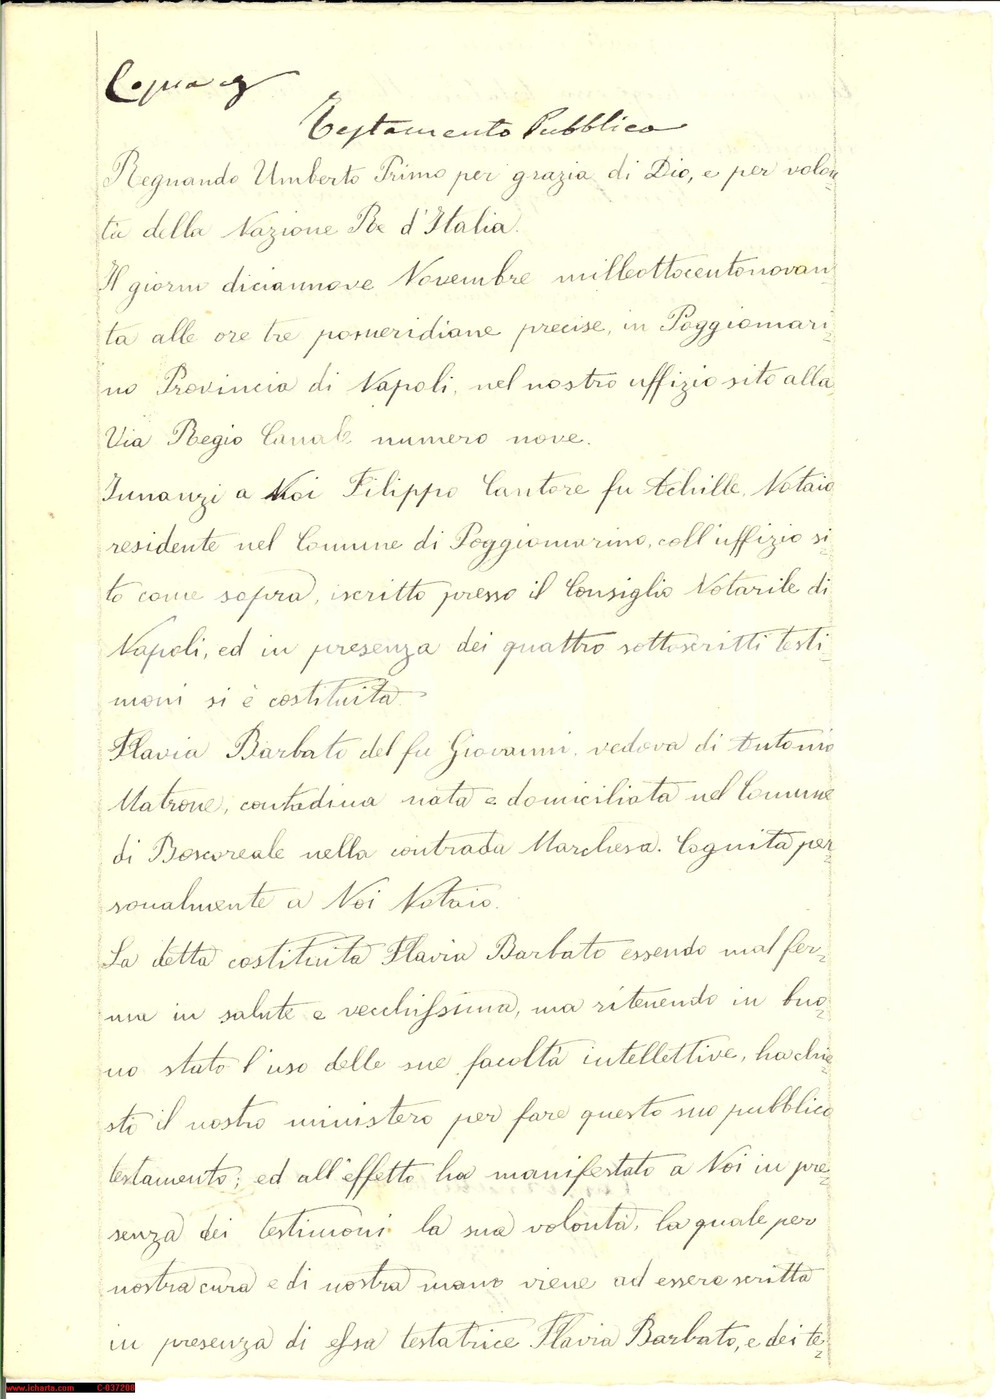 Copia
Testamento Pubblico
Regnando Umberto Primo per grazia di Dio, e per volon=
tà della Nazione Re d'Italia.
Il giorno diciannove Novembre milleottocentonovan=
ta alle ore tre pomeridiane precise, in Poggiomari=
no Provincia di Napoli, nel nostro uffizio sito alla
Via Regio Canale numero nove.
Innanzi a Noi Filippo Cantore fu Achille, Notaio
residente nel Comune di Poggiomarino, coll'uffizio si=
to come sopra, iscritto presso il Consiglio Notarile di
Napoli, ed in presenza dei quattro sottoscritti testi=
moni si è costituita
Flavia Barbato del fu Giovanni, vedova di Antonio
Matrone, contadina nata e domiciliata nel Comune
di Boscoreale nella contrada Marchesa. Cognita per=
sonalmente a Noi Notaio.
La detta costituita Flavia Barbato essendo mal fer=
ma in salute e vecchissima, ma ritenendo in buo=
no stato l'uso delle sue facoltà intellettive, ha chie=
sto il nostro ministero per fare questo suo pubblico
testamento; ed all'effetto ha manifestato a Noi in pre=
senza dei testimoni la sua volontà, la quale per
nostra cura e di nostra mano viene ad essere scritta
in presenza di essa testatrice Flavia Barbato, e dei te=
www.icharta.com C-037208